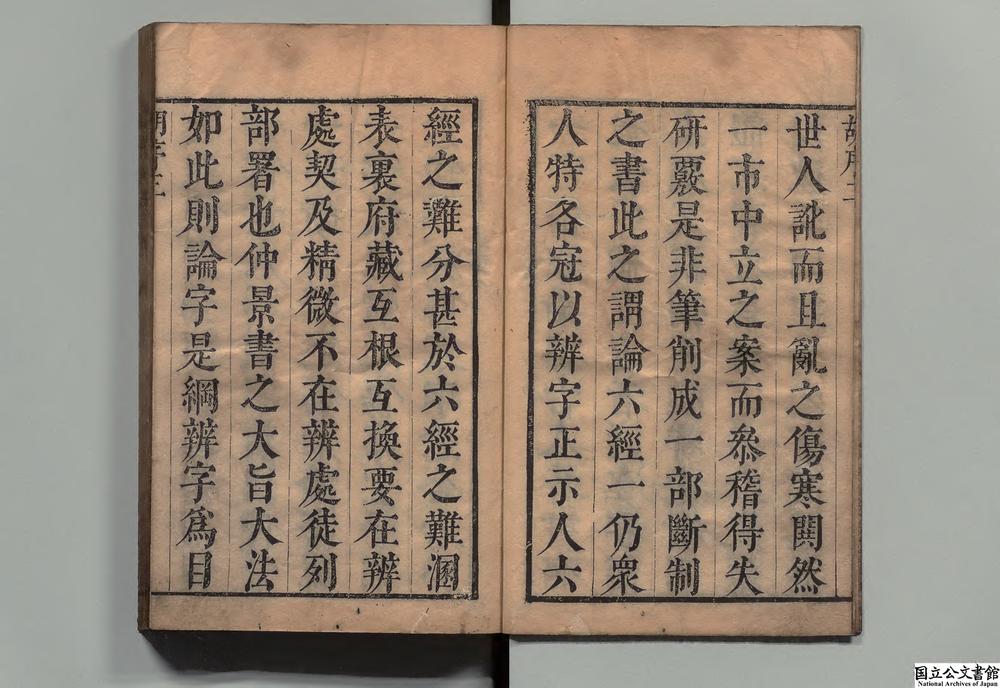 世人訛而且亂之傷寒鬨然
一市中立之案而叅稽得失
研覈是非筆削成一部斷制
之書此之謂論六經一仍衆
人特各冠以辨字正示人六
經之難分甚於六經之難溷
表裏府藏互根互換要在辨
處契及精微不在辨處徒列
部署也仲景書之大旨大法
如此則論字是綱辨字爲目
国立公文書館
National Archives of Japan